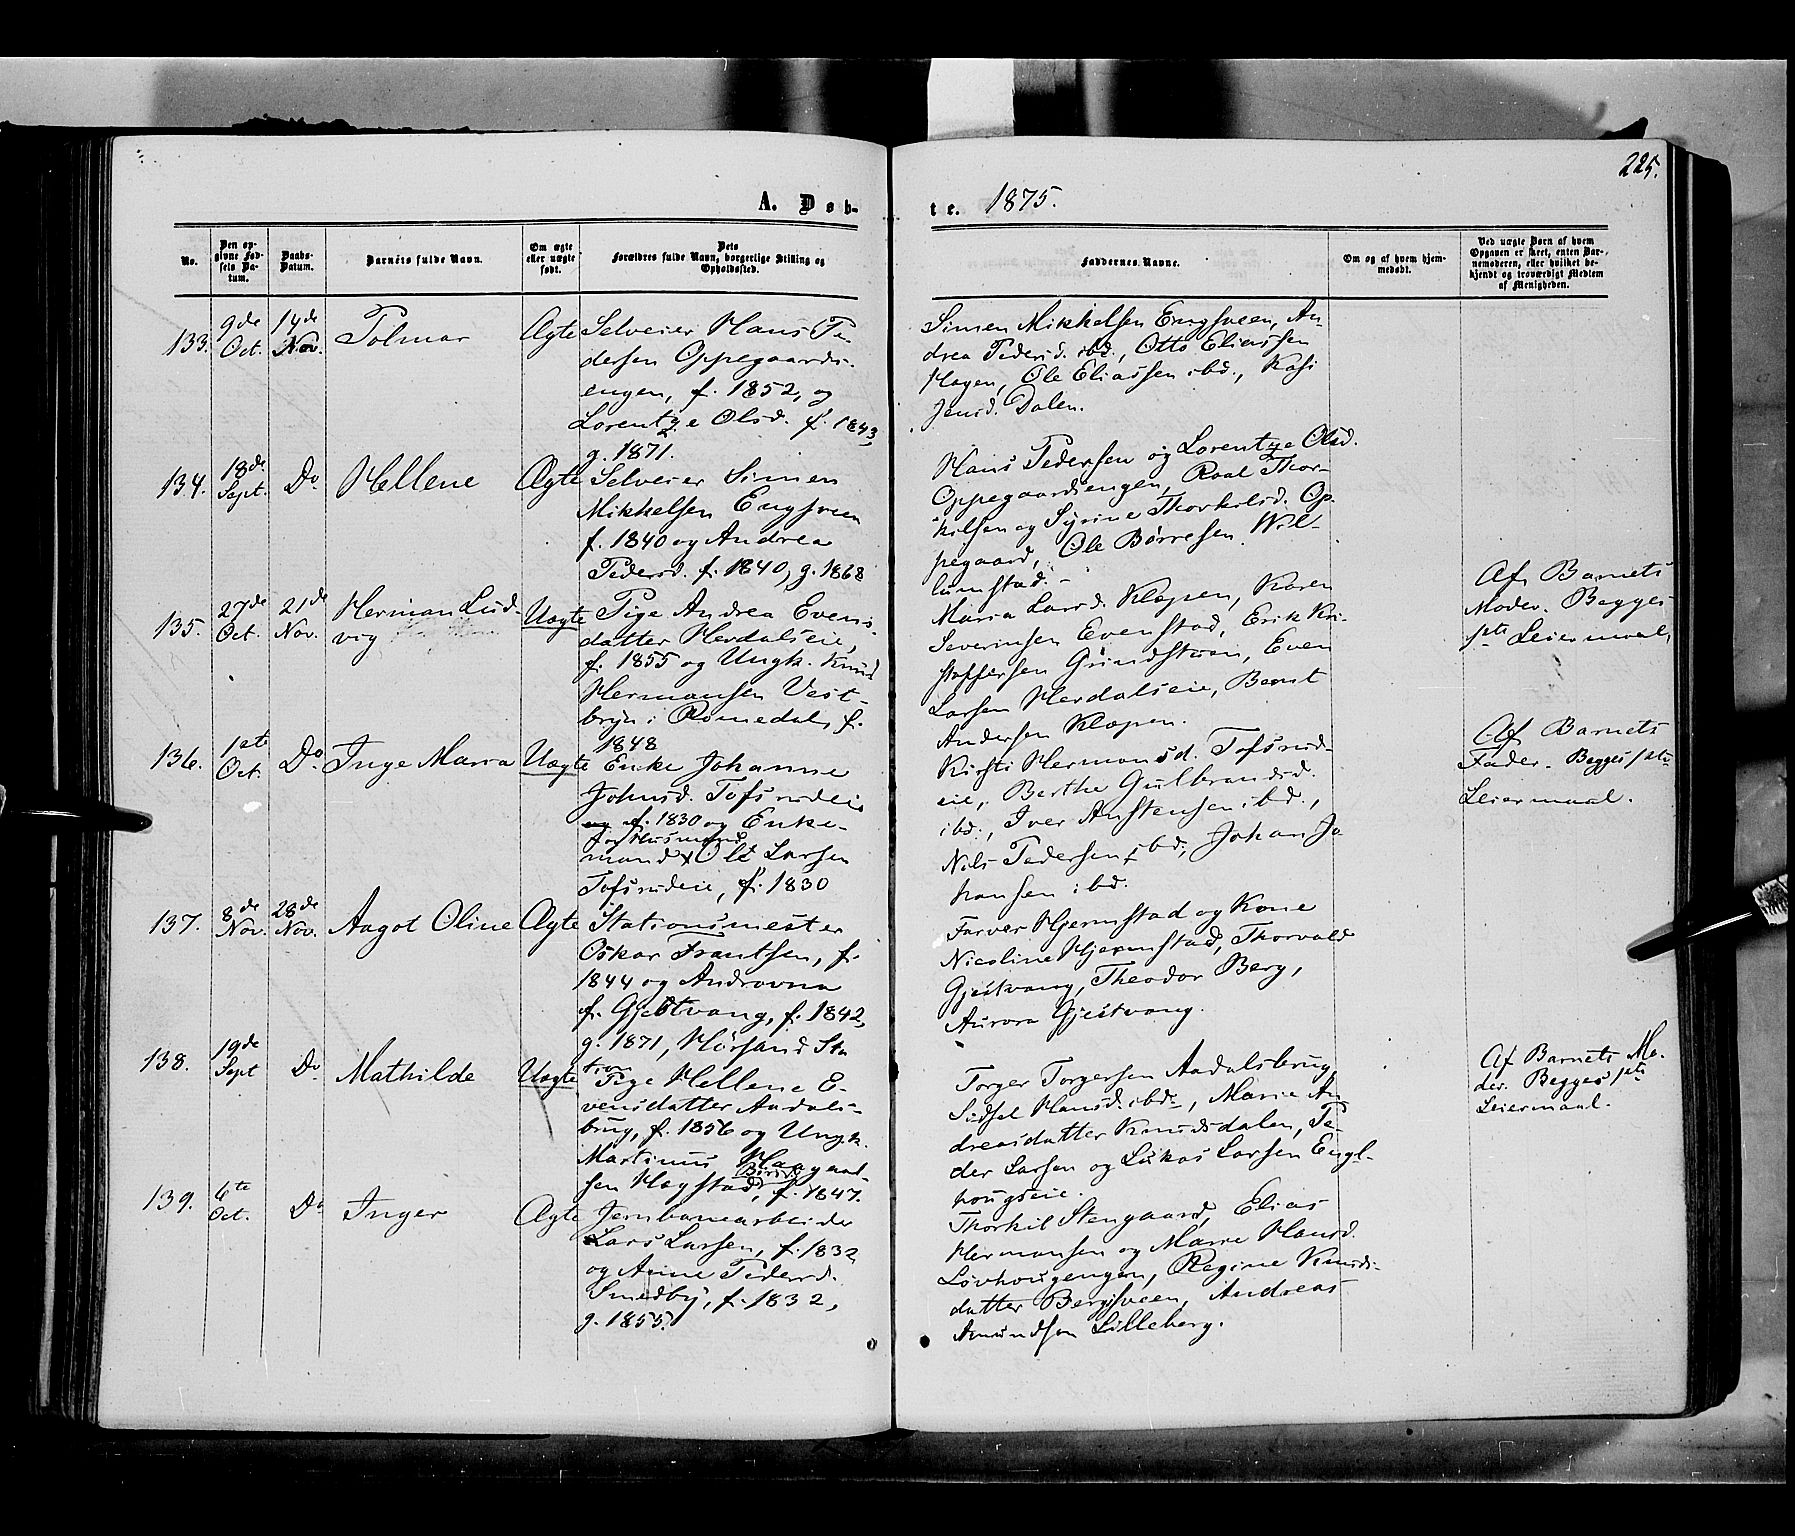 225.
A. Døb-
te. 1875.
No.
Den op-
givne Fød-
sels Da-
tum.
Daabs-
Datum.
Barnets fulde Navn.
Om ægte
eller uægte
født.
Dets
Forældres fulde Navn, borgerlige Stilling og
Opholdssted.
Faddernes Navne.
Om og af hvem hjem-
medøbt.
Ved uægte Børn af hvem
Opgaven er skeet, enten Bar-
nemoderen, eller hvilket be-
kjendt og troværdigt Medlem
af Menigheden.
133.
9de
Oct.
14de
Nov.
Polmar
Ægte
Selveier Hans Pe-
dersen Oppegaards-
engen, f. 1852, og
Lorentze Olsd. f. 1843,
g. 1871.
Simen Mikkelsen Engsveen, An-
drea Pedersd. ibd., Otto Eliassen
Hagen, Ole Eliassen ibd., Kasi
Jensd. Dalen.
134.
18de
Sept.
Do
Hellene
Ægte
Selveier Simen
Mikkelsen Engsveen
f. 1840 og Andrea
Pedersd. f. 1840, g. 1868
Hans Pedersen og Lorentze Olsd.
Oppegaardsengen, Roal Thor-
kilsen og Syrine Thorkilsd. Op-
pegaard, Ole Børresen Wil-
lumstad.
135.
27de
Oct.
21de
Nov.
Herman Lud-
vig
Uægte
Pige Andrea Evens-
datter Herdalseie,
f. 1855 og Ungk. Knud
Hermansen Vest-
byn i Romedal, f.
1848
Maria Larsd. Klæpen, Karen
Severinsen Evenstad, Erik Kri-
stoffersen Grundstuen, Even
Larsen Herdalseie, Bernt
Andersen Klæpen.
Af Barnets
Moder. Begges
1ste Leiermaal.
136.
1ste
Oct.
Do
Inge Maria
Uægte
Enke Johanne
Johnsd. Tofsrudeie
f. 1830 og Enke-
mand Husmand Ole Larsen
Tofsrudeie, f. 1830
Kirsti Hermansd. Tofsrud-
eie, Berthe Gulbrandsd.
ibd., Iver Anstensen ibd.,
Nils Pedersen ibd., Johan Jo
hansen ibd.
Af Barnets
Fader. Begges 1ste
Leiermaal.
137.
8de
Nov.
28de
Nov.
Aagot Oline
Ægte
Stationsmester
Oskar Frantsen, f.
1844 og Androvna
f. Gjestvang, f. 1842,
g. 1871, Hørsand Sta
tion
Farver Hjermstad og Kone
Nicoline Hjermstad, Thorvald
Gjestvang, Theodor Berg,
Aurora Gjestvang.
138.
19de
Sept
Do
Mathilde
Uægte
Pige Hellene E-
vensdatter Aadals-
brug, f. 1856 og Ungk.
Martinus Haagaard-
sen Hagstad, Biri f. 1847.
Torger Torgersen Aadalsbrug,
Sidsel Hansd. ibd., Marie An
dreasdatter Knudsdalen, Pe-
der Larsen og Lukas Larsen Engl-
hougseie.
Af Barnets Mo-
der. Begges 1ste
Leiermaal.
139.
6te
Oct.
Do
Inger
Ægte
Jernbanearbeider
Lars Larsen, f. 1832
og Anne Pedersd.
Smedby, f. 1832,
g. 1855.
Thorkil Stengaard, Elias
Hermansen og Marie Hansd.
Løvhougengen, Regine Knuds-
datter Bergsveen, Andreas
Amundsen Lilleberg.